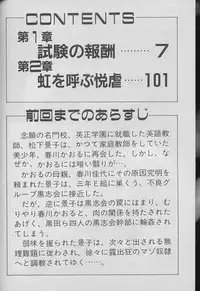 CONTENTS
第1章
試験の報酬………7
第2章
虹を呼ぶ悦虐………101
前回までのあらすじ
念願の名門校、英正学園に就職した英語教
師、松下景子は、かつて家庭教師をしていた
美少年、春川かおるに再会した。しかし、な
ぜか、かおるには暗い翳りが…。
かおるの母親、春川佳代にその原因究明を
頼まれた景子は、三年E組に巣くう、不良グ
ループ黒志会に接近した。
だが、逆に景子は黒志会の罠にはまり、む
りやり春川かおると、肉の関係を持たされた
あげく、黒田ら四人の黒志会幹部に輪姦され
てしまう。
弱味を握られた景子は、次々と出される無
理難題に従わされ、徐々に露出狂のマゾ奴隷
へと調教されてゆく……。